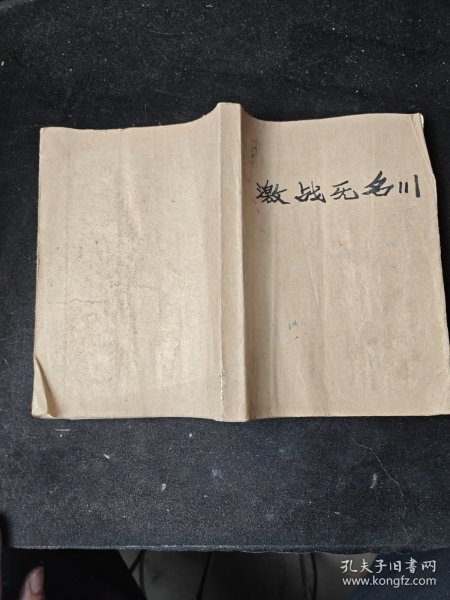 激战无名川
孔夫子旧书网
www.kongfz.com